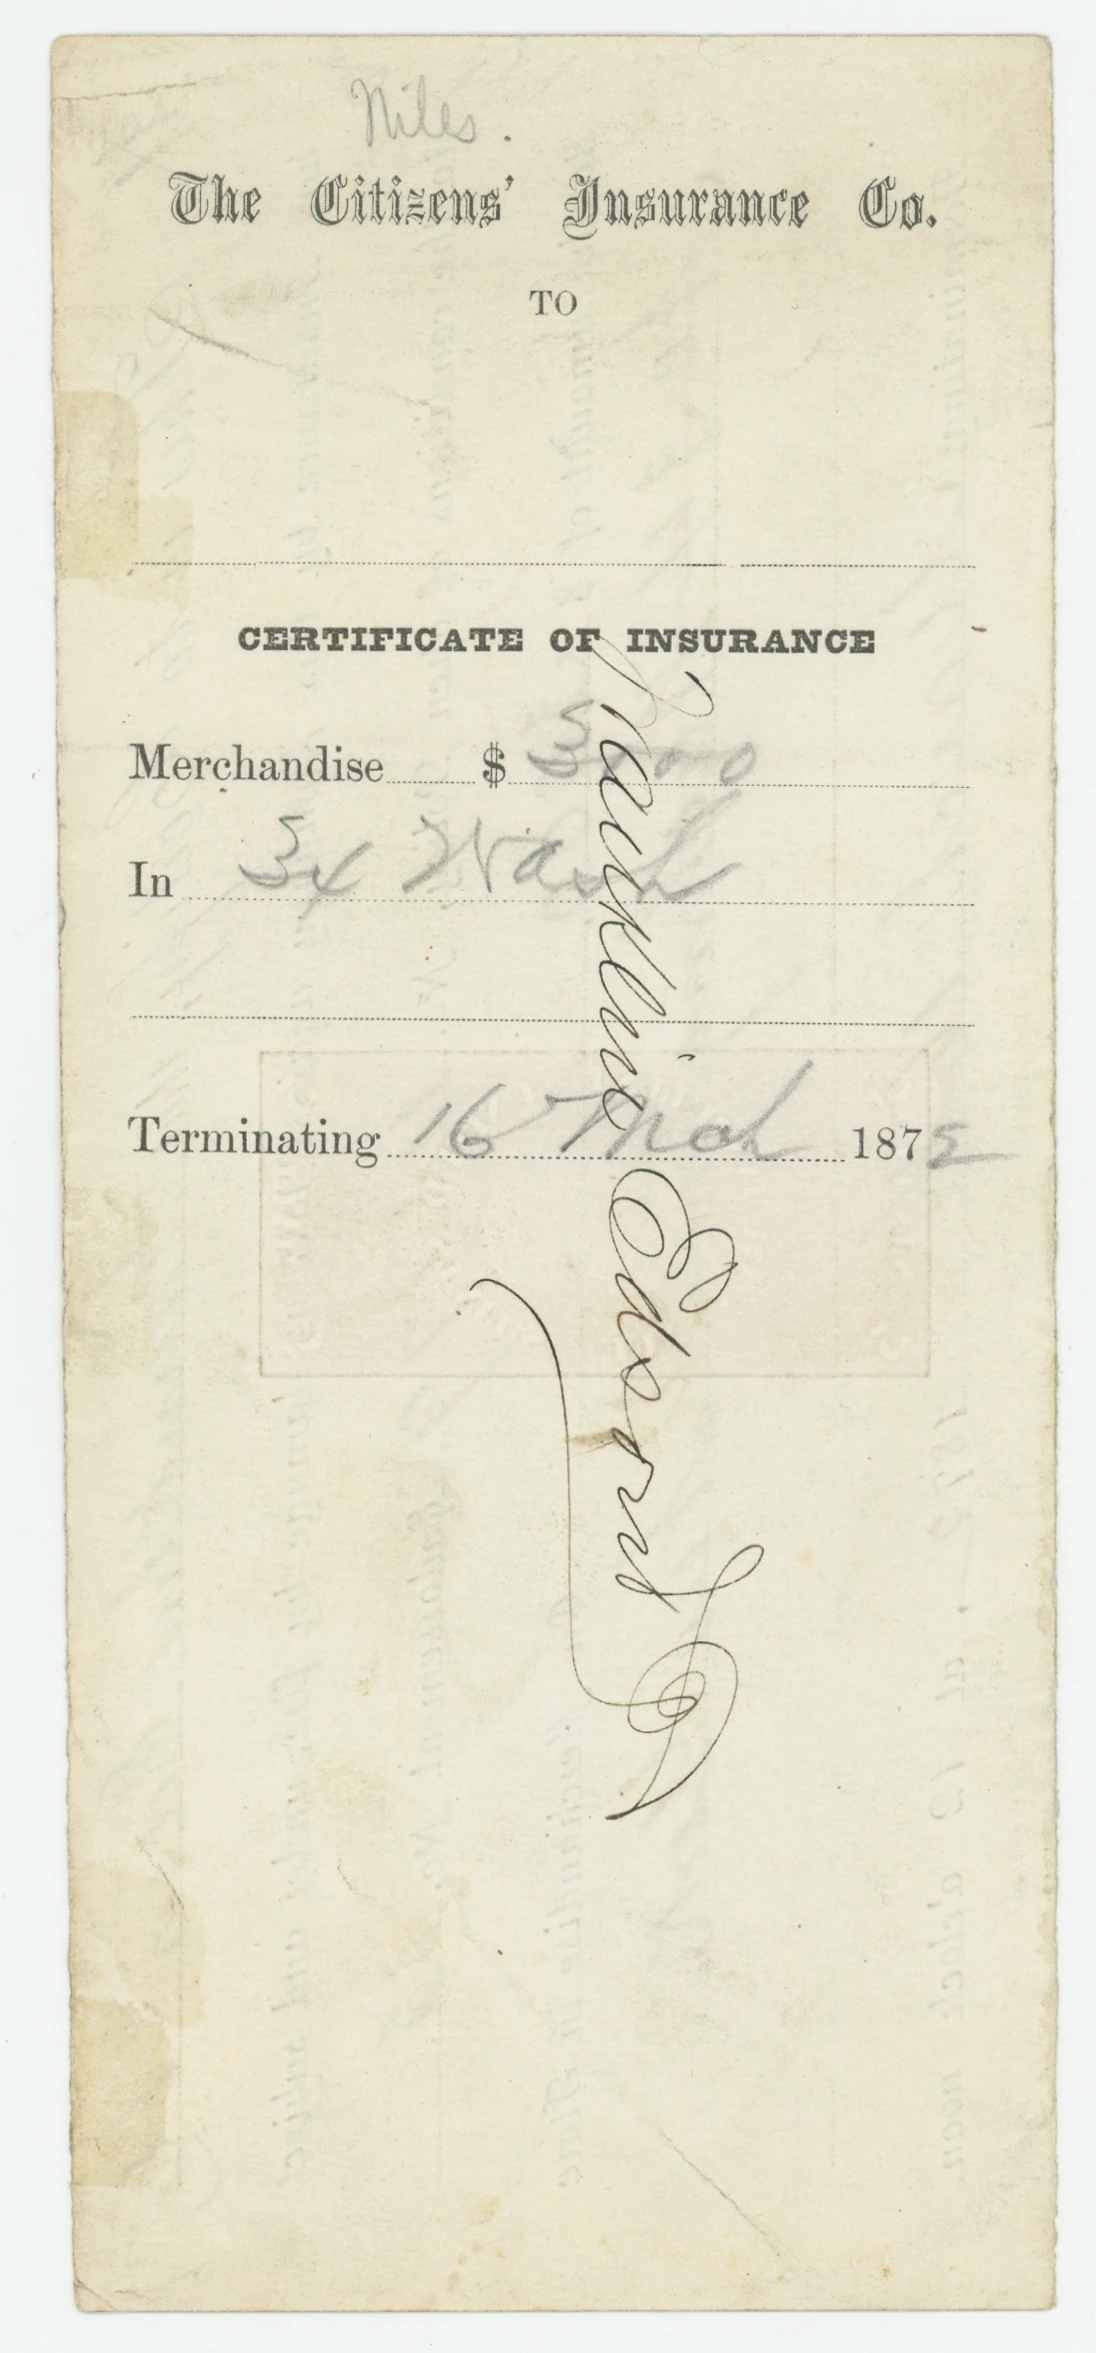 Niles.
The Citizens' Insurance Co.
TO
CERTIFICATE OF INSURANCE
Merchandise $ 3000
In 34 Wash
Terminating 16 Mch 1872
Franklin Edson